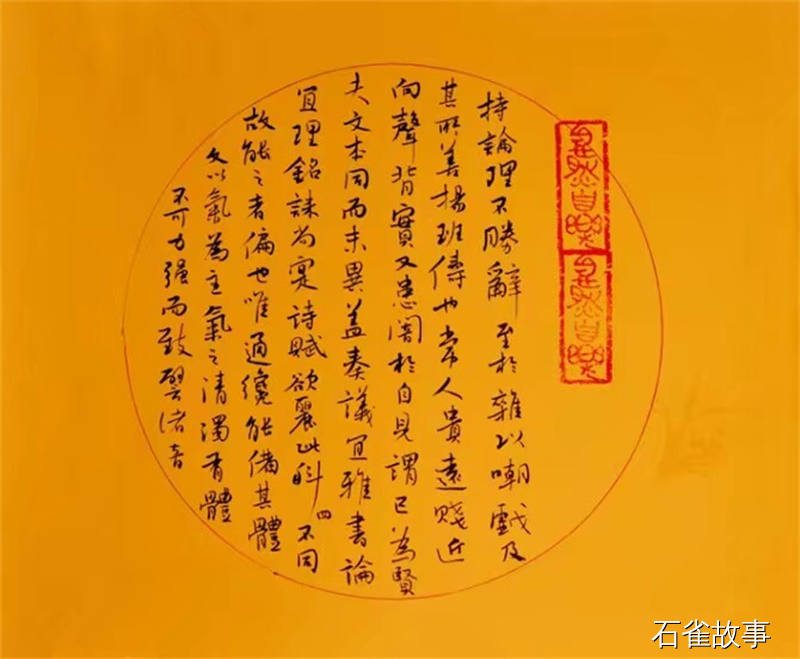 持論理不勝辭至於雜以嘲戲及
其所善揚班儔也常人貴遠賤近
向聲背實又患闇於自見謂己為賢
夫文本同而末異蓋奏議宜雅書論
宜理銘誄尚寔詩賦欲麗此科四不同
故能之者偏也唯通纔能備其體
文以氣為主氣之清濁有體
不可力强而致譬诸音
然自樂
然自樂
石雀故事